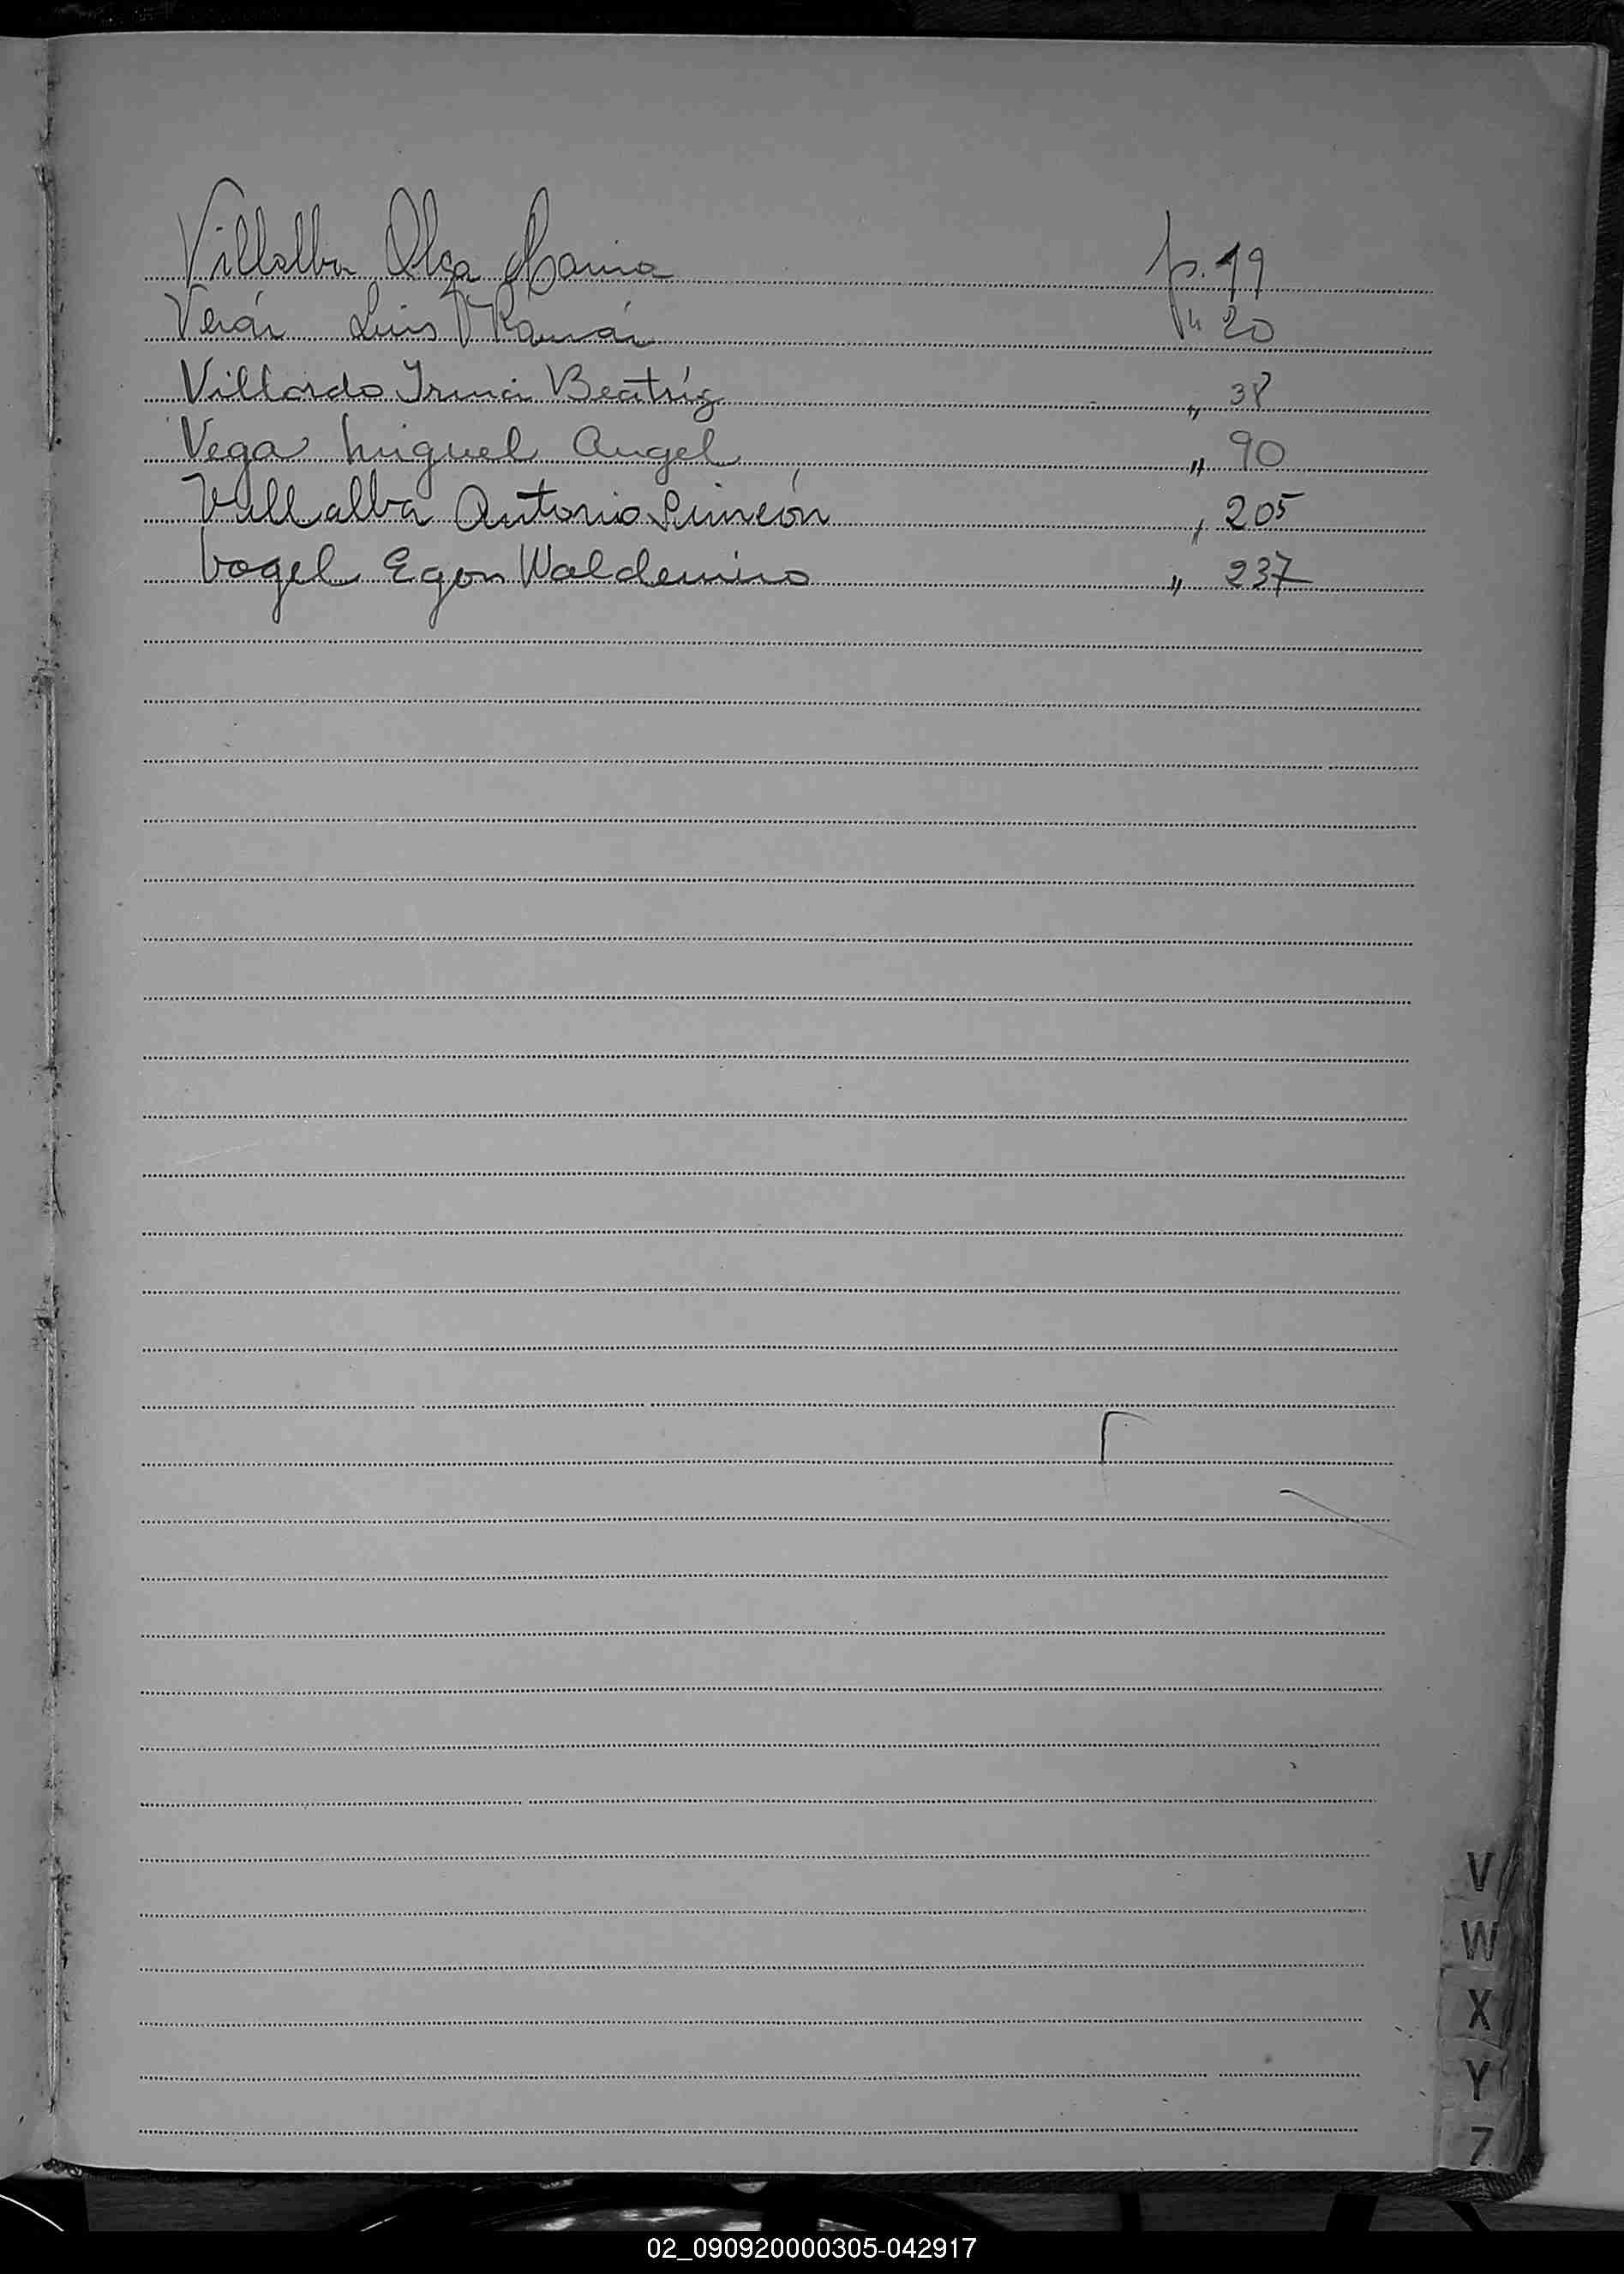 Villalba Olga Maria p. 19
Verón Luis Ramón " 20
Villordo Irma Beatríz " 38
Vega Miguel Angel " 90
Villalba Antonio Simeón " 205
Vogel Egon Waldemiro " 237
V
W
X
Y
Z
02_090920000305-042917